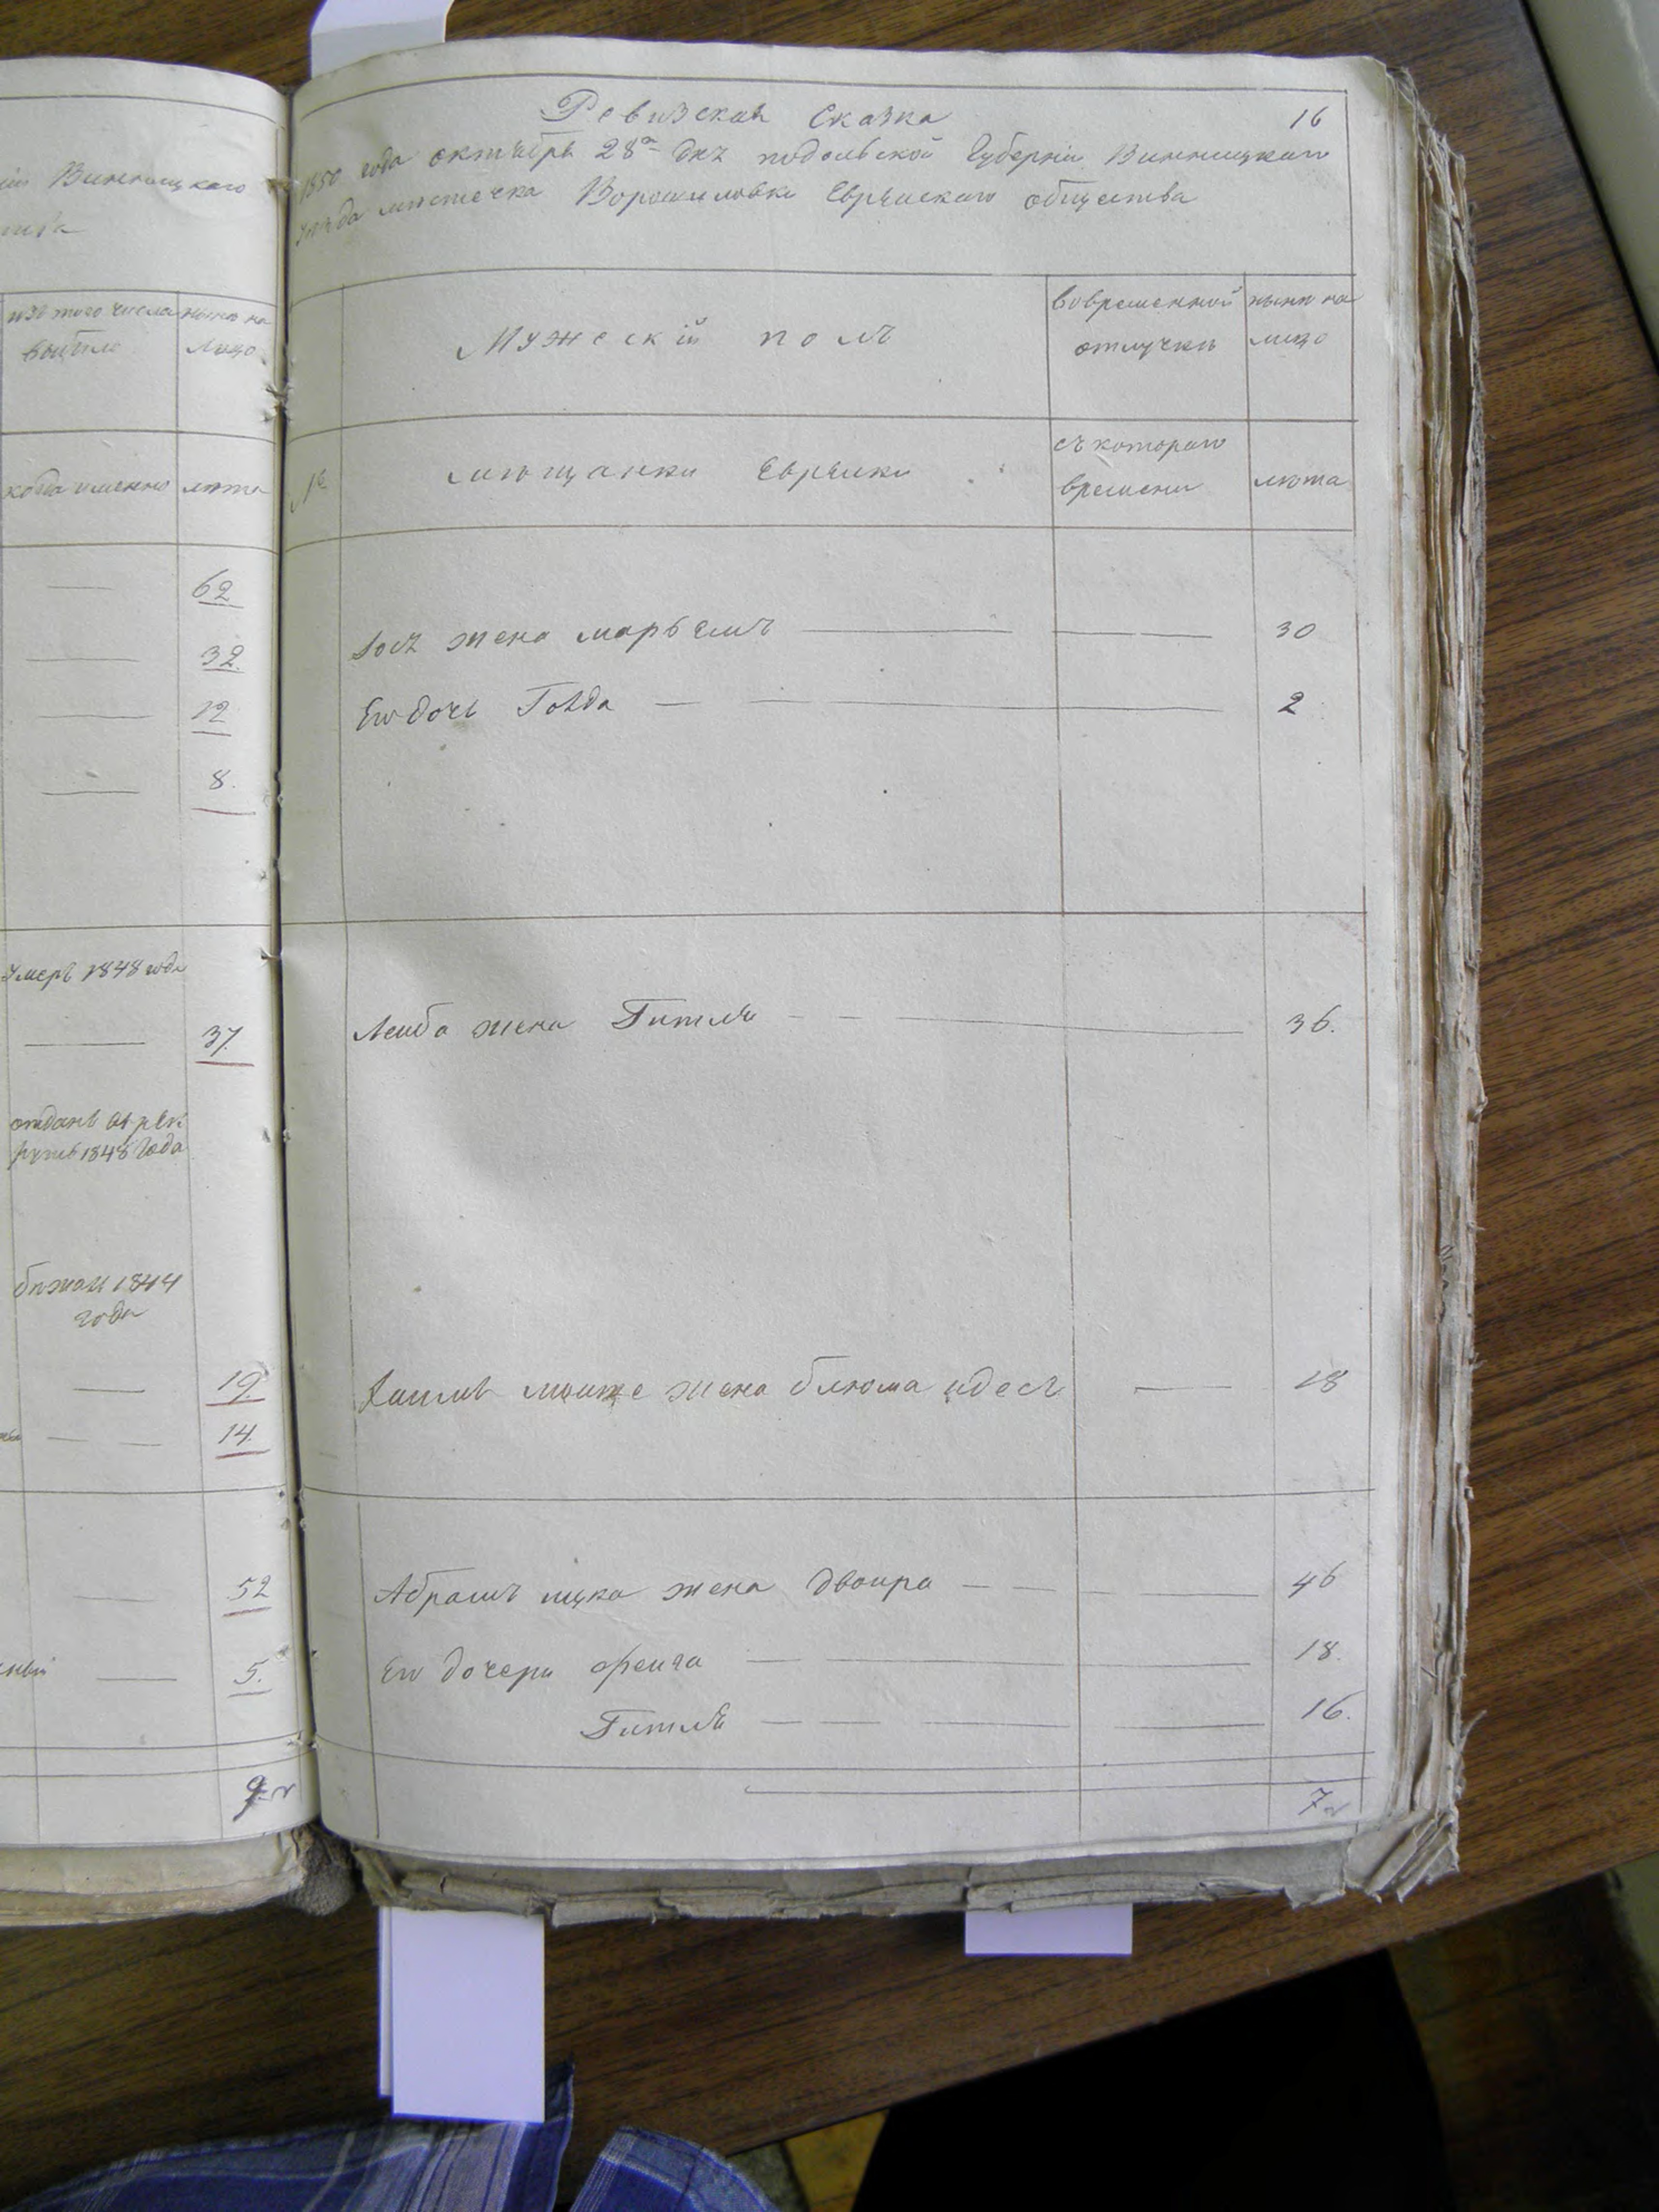 Винницкаго
изъ того числа
выбыло
ныне на
лицо
когда именно
лѣта
62
32.
12
8.
Умеръ 1848 года
37.
отданъ въ рек
руты 1848 года
бѣжал 1844
года
19.
14.
52
5.
9
Ревизская Сказка
16
1850 года октября 28го дня подольской Губерніи Винницкаго
уѣзда мѣстечка Ворошиловки Еврейскаго общества
Мужескій полъ
вовременной
отлучки
ныни на
лицо
№
мѣщанки Еврейки
съ котораго
времени
лѣта
жена марьемъ 30
Его дочь Голда 2
Лейба жена Гитля 36.
мошке жена блюма идесъ 18
Абрамъ ицко жена двойра 46
Его дочери фейга 18.
Гитля 16.
7